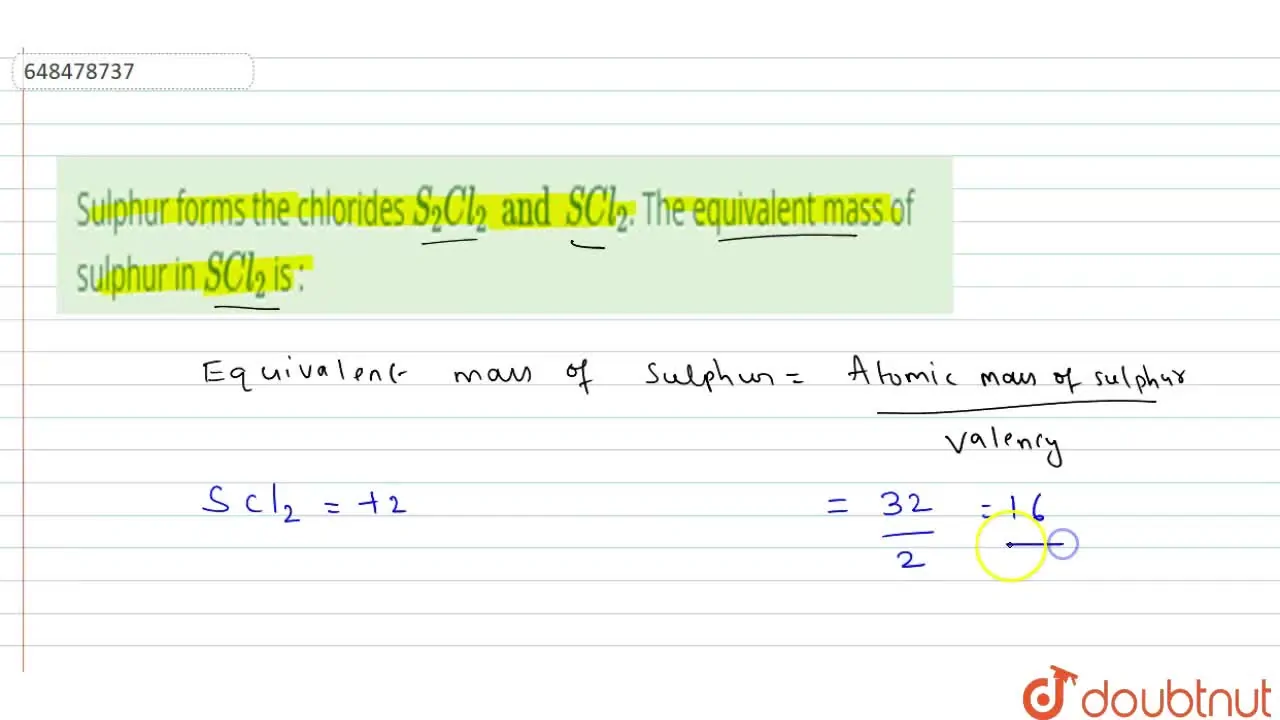 648478737
Sulphur forms the chlorides S₂Cl₂ and SCl₂. The equivalent mass of
sulphur in SCl₂ is :
Equivalent mass of Sulphur = Atomic mass of sulphur
valency
SCl₂ = +2 = 32 = 16
2
doubtnut